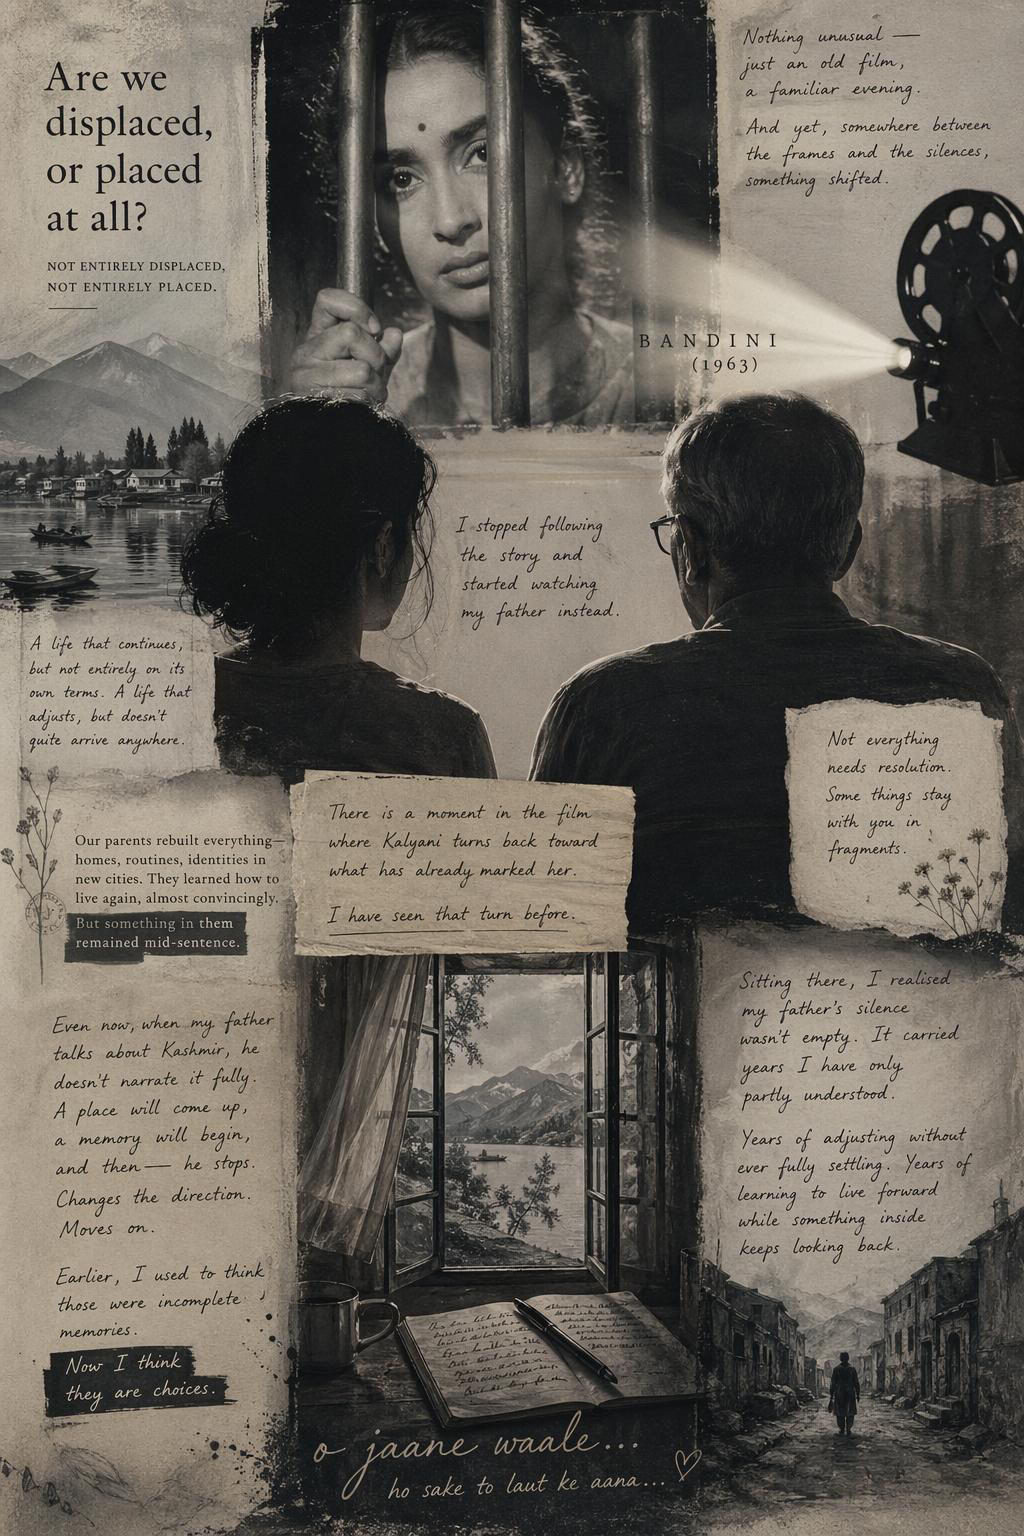 Are we
displaced,
or placed
at all?
NOT ENTIRELY DISPLACED,
NOT ENTIRELY PLACED.
Nothing unusual —
just an old film,
a familiar evening.
And yet, somewhere between
the frames and the silences,
something shifted.
BANDINI
(1963)
I stopped following
the story and
started watching
my father instead.
A life that continues,
but not entirely on its
own terms. A life that
adjusts, but doesn't
quite arrive anywhere.
Our parents rebuilt everything—
homes, routines, identities in
new cities. They learned how to
live again, almost convincingly.
But something in them
remained mid-sentence.
There is a moment in the film
where Kalyani turns back toward
what has already marked her.
I have seen that turn before.
Not everything
needs resolution.
Some things stay
with you in
fragments.
Even now, when my father
talks about Kashmir, he
doesn't narrate it fully.
A place will come up,
a memory will begin,
and then — he stops.
Changes the direction.
Moves on.
Earlier, I used to think
those were incomplete
memories.
Now I think
they are choices.
Sitting there, I realised
my father's silence
wasn't empty. It carried
years I have only
partly understood.
Years of adjusting without
ever fully settling. Years of
learning to live forward
while something inside
keeps looking back.
o jaane waale...
ho sake to laut ke aana...